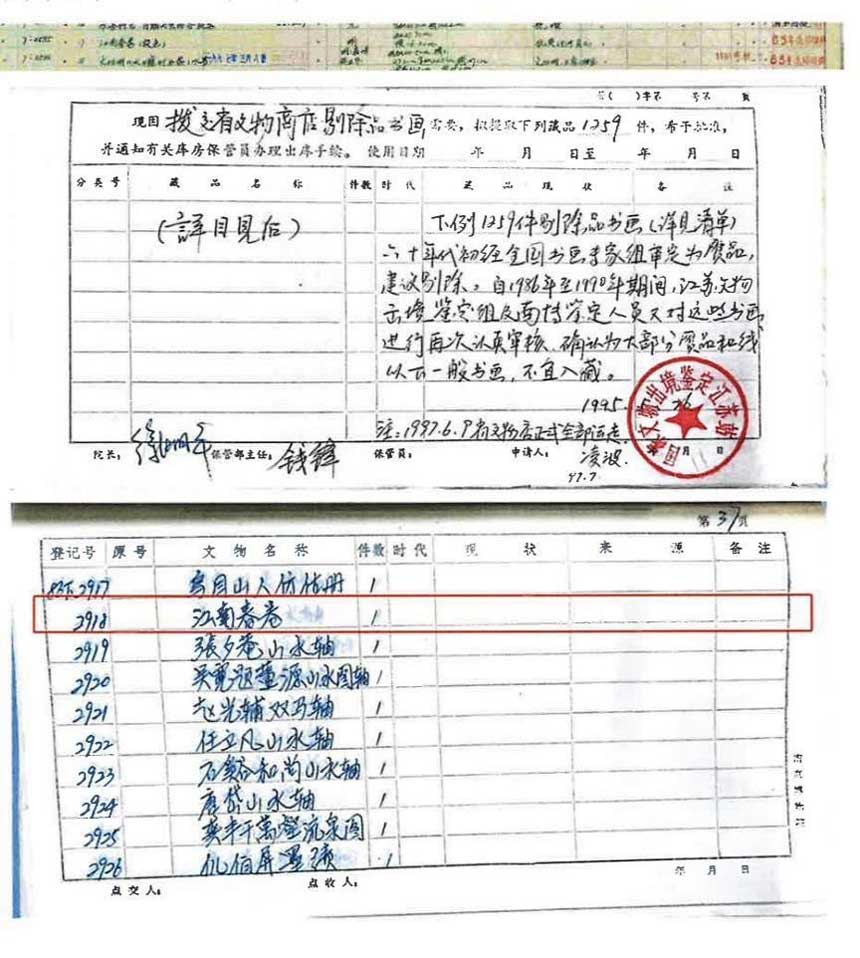 7:0535 江南春卷(设色)
现因 拨交省文物商店剔除品书画 需要，拟提取下列藏品1259件，希予批准，
并通知有关库房保管员办理出库手续。使用日期 年 月 日至 年 月 日
分类号 藏品名称 件数 时代 藏品现状 备注
(詳目見后)
下列1259件剔除品书画(详见清单)
六十年代初经全国书画专家组审定为赝品，
建议剔除。自1986年至1990年期间，江苏文物
出境鉴定组及南博鉴定人员又对这些书画
进行再次认真审核，确认为大部分赝品和线
以下一般书画，不宜入藏。
1995.
注:1997.6.9 省文物店正式全部运走.
院长: 徐湖平 保管部主任: 钱锋 保管员: 申请人: 凌波. 月 日
97.7
国家文物出境鉴定江苏站
第37页
登记号 原号 文物名称 件数 时代 现状 来源 备注
2917 烏目山人仿古册 1
2918 江南春卷 1
2919 張夕菴山水轴 1
2920 吴寬题董源山水图轴 1
2921 赵光辅双马轴 1
2922 任立凡山水轴 1
2923 石谿和尚山水轴 1
2924 唐岱山水轴 1
2925 1
2926 1
年 月 日
点交人: 点收人: